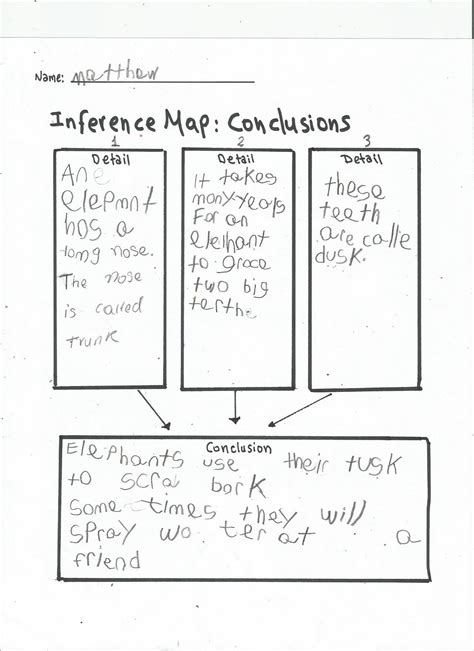 Name: matthew
Inference Map: Conclusions
1
Detail
An e
elepmnt
has a
long nose.
The nose
is called
trunk
2
Detail
It takes
manyyears
For an
elehant
to grace
two big
terthe
3
Detail
these
teeth
are calle
dusk.
Conclusion
Elephants use their tusk
to scra bark
Some times they will
spray wo ter at a
friend